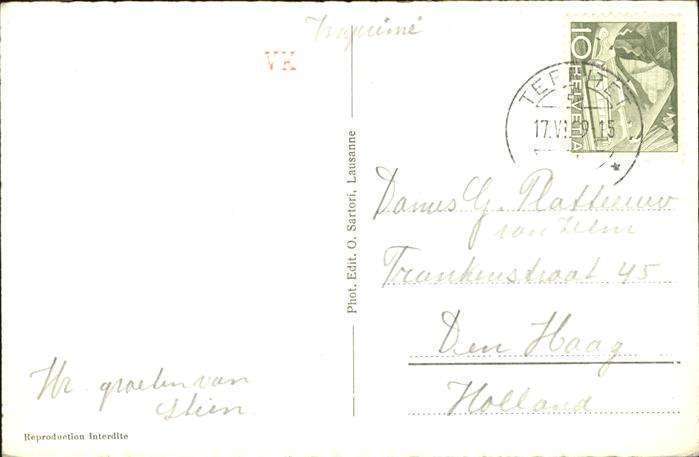 Imprimé
VK
10
HELVETIA
TERRITET
17.VI. 9-15
Phot. Edit. O. Sartori, Lausanne
Dames G. Platteeuw
van
Frankenstraat 45
Den Haag
Holland
Hr. groeten van
Stien
Reproduction Interdite